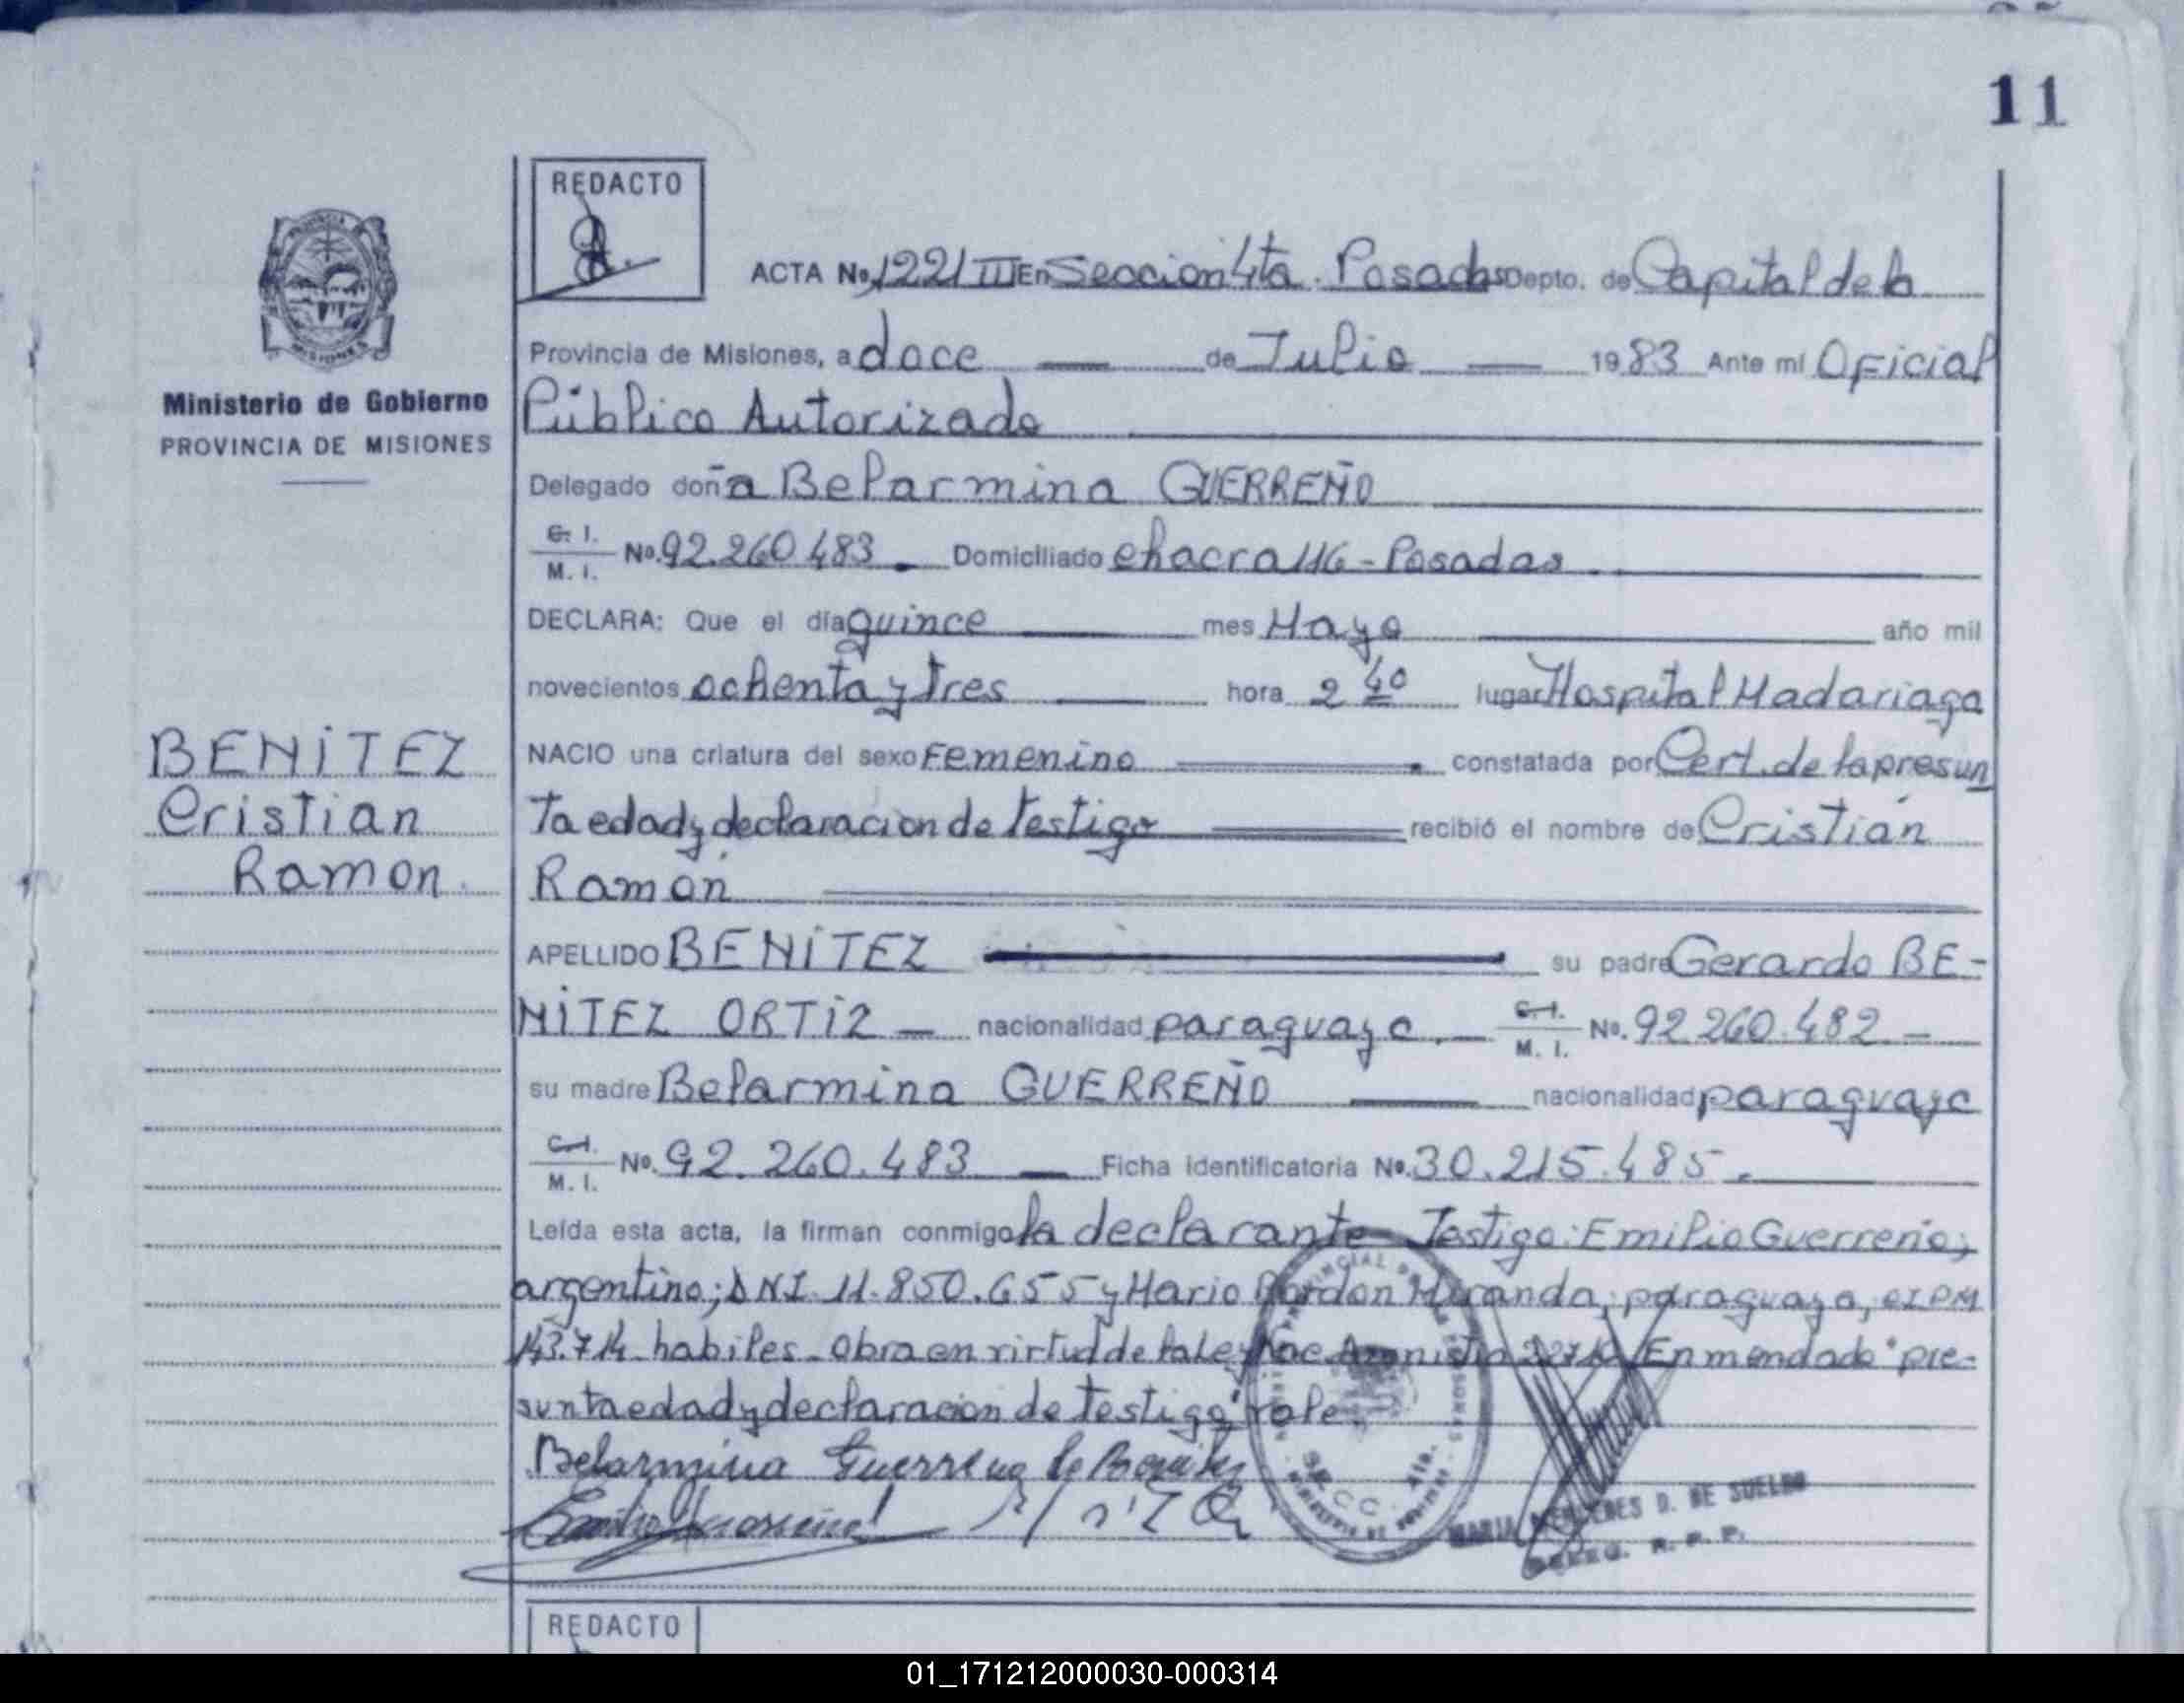 11
REDACTO
ACTA No. 1221 III En Seccion 4ta. Posadas Depto. de Capital de la
Provincia de Misiones, a doce de Julio 1983 Ante mí Oficial
Ministerio de Gobierno
PROVINCIA DE MISIONES
Público Autorizado
Delegado doña Belarmina GUERREÑO
C. I. M. I. No. 92.260.483. Domiciliado chacra 116 - Posadas
DECLARA: Que el día quince mes Mayo año mil
novecientos ochenta y tres hora 2 40 lugar Hospital Madariaga
BENÍTEZ
Cristian
Ramon.
NACIO una criatura del sexo Femenino constatada por Cert. de la presun
ta edad y declaracion de testigo recibió el nombre de Cristián
Ramón
APELLIDO BENÍTEZ su padre Gerardo BE-
NÍTEZ ORTÍZ nacionalidad paraguaya C. I. M. I. No. 92.260.482 -
su madre Belarmina GUERREÑO nacionalidad paraguaya
C. I. M. I. No. 92.260.483 Ficha identificatoria No. 30.215.485.
Leída esta acta, la firman conmigo la declarante Testigo: Emilio Guerreño;
argentino; DNI. 11.850.655 y Mario Bordon Miranda, paraguayo, CIPM
143.714 habiles. Obra en virtud de la ley Amnistia Enmendado "pre-
sunta edad y declaracion de testigo" vale.
Belarmina Guerreño de Benitez
SECC. 4ta.
MARIA MERCEDES D. DE SUELDO
DELEG. R. P. P.
REDACTO
01_171212000030-000314